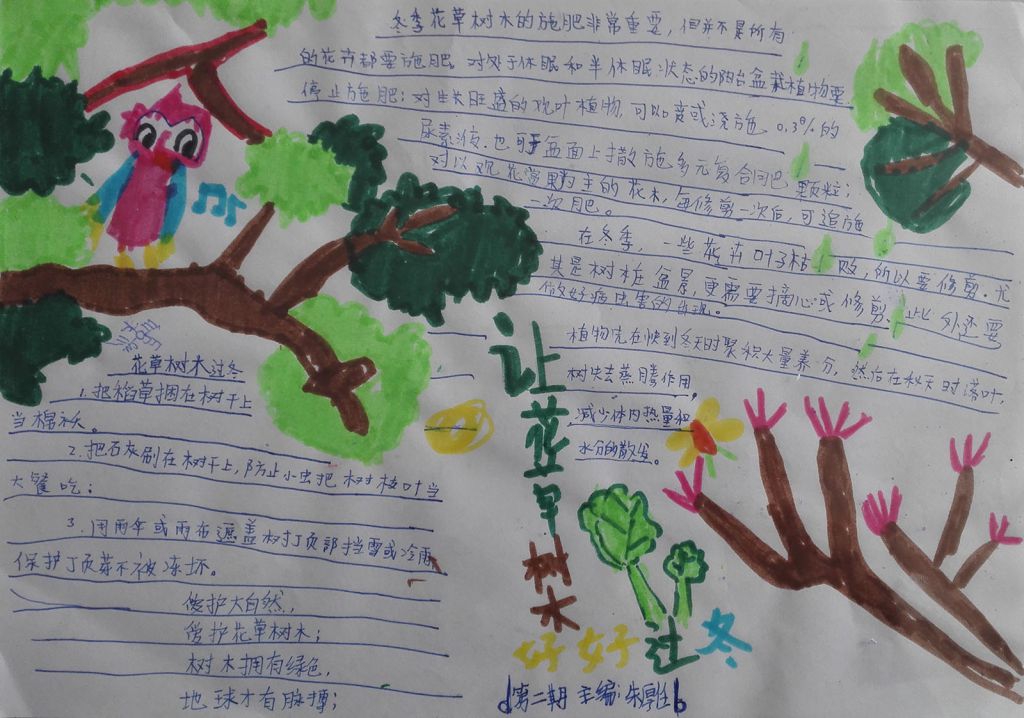 冬季花草树木的施肥非常重要，但并不是所有
的花卉都要施肥。对处于休眠和半休眠状态的阳台盆栽植物要
停止施肥；对生长旺盛的观叶植物，可以浇施0.3%的
尿素液，也可于盆面上撒施多元复合肥颗粒；
对以观花赏果为主的花木，每修剪一次后，可追施
一次肥。
在冬季，一些花卉叶子枯败，所以要修剪。尤
其是树桩盆景，更需要摘心或修剪。此外还要
做好病虫害的
植物先在快到冬天时聚积大量养分，然后在秋天时落叶，
树失去蒸腾作用，
减少体内热量和
水分的散发。
花草树木过冬
1.把稻草捆在树干上
当棉袄。
2.把石灰刷在树干上，防止小虫把树枝叶当
大餐吃；
3.用雨伞或雨布遮盖树顶部挡雪或冷雨
保护顶芽不被冻坏。
爱护大自然，
爱护花草树木；
树木拥有绿色，
地球才有脉搏；
让花草
树木
好好过冬
第二期 主编：朱